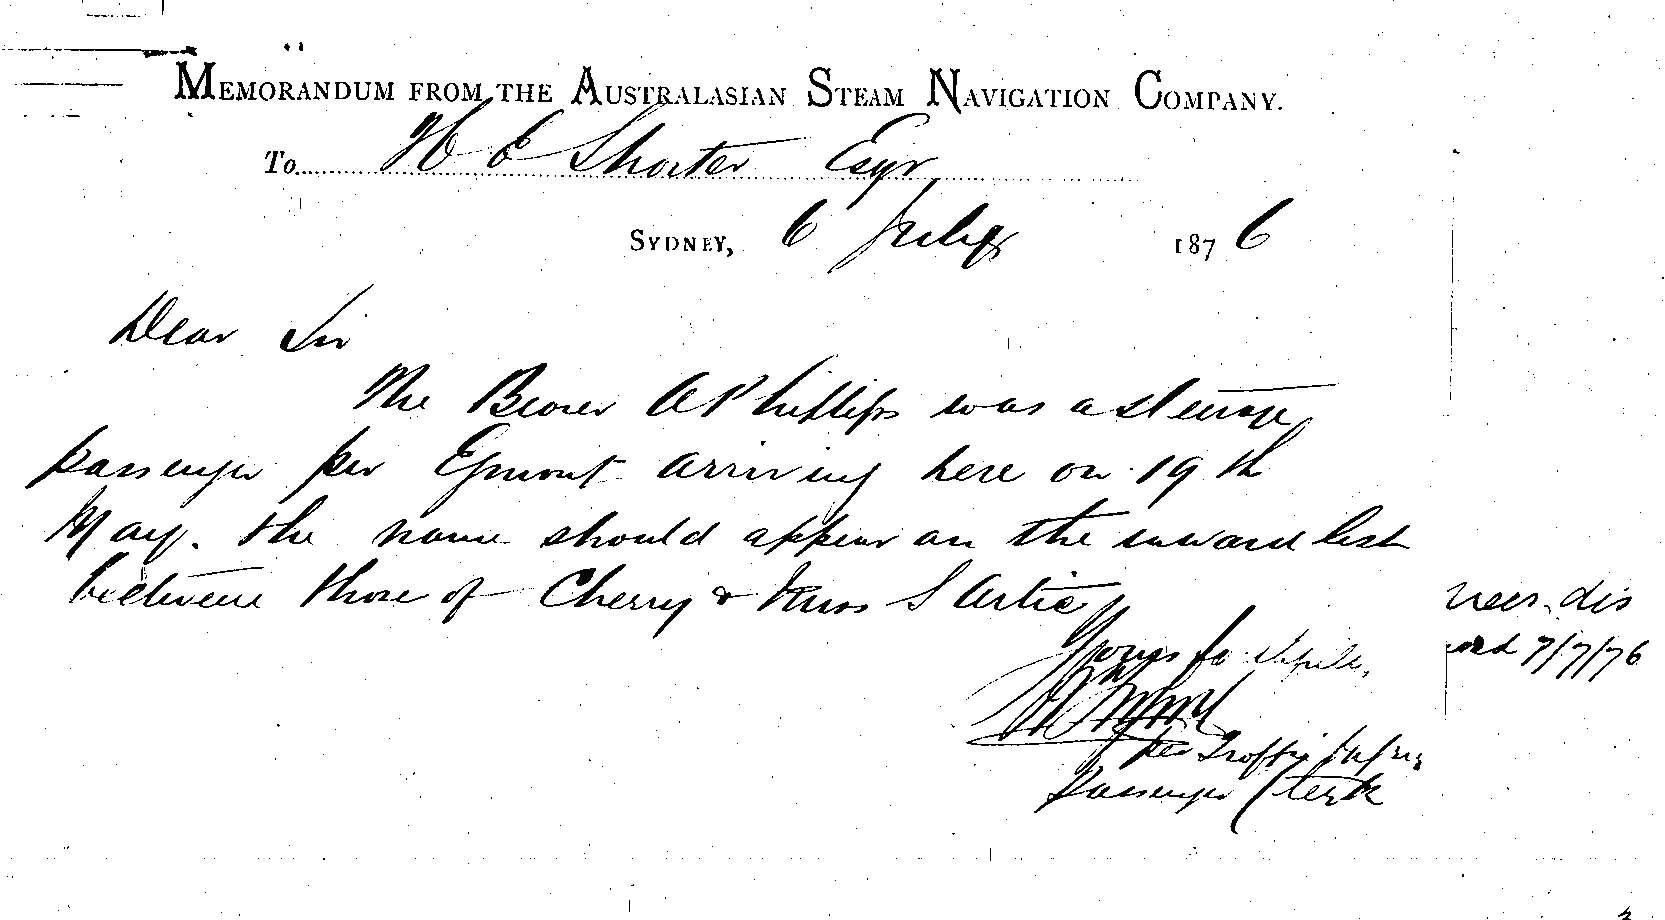 MEMORANDUM FROM THE AUSTRALASIAN STEAM NAVIGATION COMPANY.
To H E Shorter Esqr
SYDNEY, 6 July 1876
Dear Sir
The Bearer A Phillips was a steerage
passenger per Egmont arriving here on 19th
May. the name should appear on the inward list
between those of Cherry &
Yours
per Traffic
Passenger Clerk
7/7/76